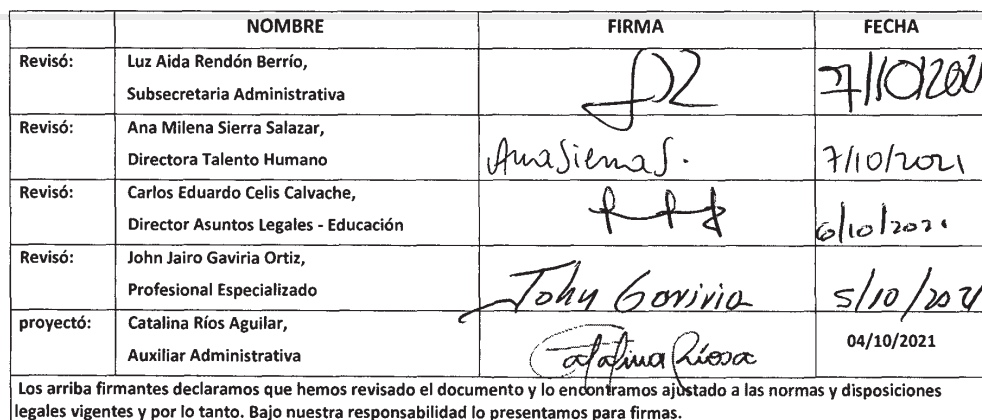 NOMBRE FIRMA FECHA
Revisó: Luz Aida Rendón Berrío,
Subsecretaria Administrativa 7/10/2021
Revisó: Ana Milena Sierra Salazar,
Directora Talento Humano Ana Sierra S. 7/10/2021
Revisó: Carlos Eduardo Celis Calvache,
Director Asuntos Legales - Educación 6/10/2021
Revisó: John Jairo Gaviria Ortiz,
Profesional Especializado John Gaviria 5/10/2021
proyectó: Catalina Ríos Aguilar, 04/10/2021
Auxiliar Administrativa Catalina Ríosa
Los arriba firmantes declaramos que hemos revisado el documento y lo encontramos ajustado a las normas y disposiciones
legales vigentes y por lo tanto. Bajo nuestra responsabilidad lo presentamos para firmas.